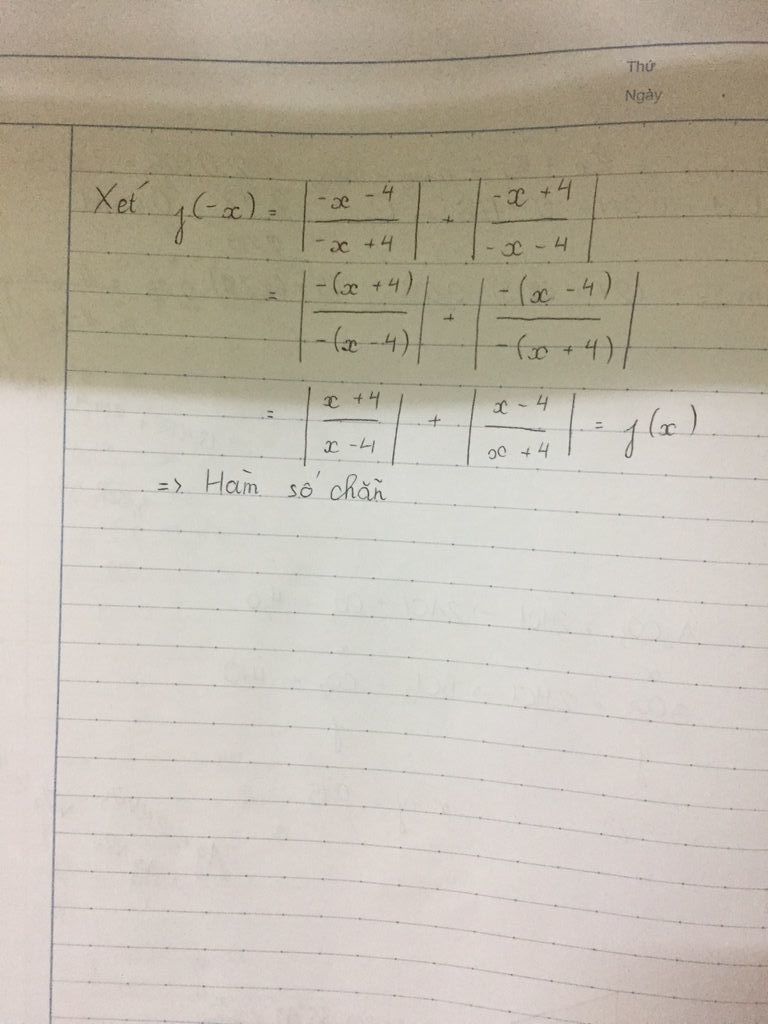 Thứ
Ngày
Xét y(-x) = |(-x - 4)/(-x + 4)| + |(-x + 4)/(-x - 4)|
= |(-(x + 4))/(-(x - 4))| + |(-(x - 4))/(-(x + 4))|
= |(x + 4)/(x - 4)| + |(x - 4)/(x + 4)| = y(x)
=> Hàm số chẵn